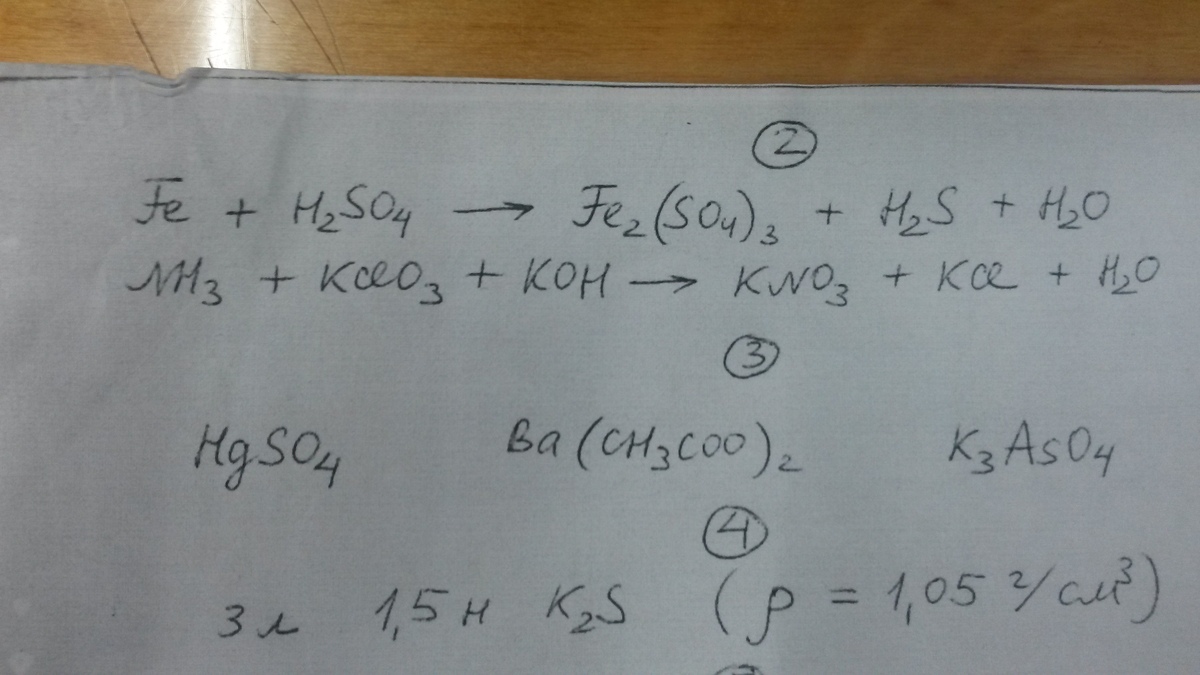 ②
Fe + H₂SO₄ → Fe₂(SO₄)₃ + H₂S + H₂O
NH₃ + KClO₃ + KOH → KNO₃ + KCl + H₂O
③
HgSO₄ Ba(CH₃COO)₂ K₃AsO₄
④
3 л 1,5 н K₂S (ρ = 1,05 г/см³)